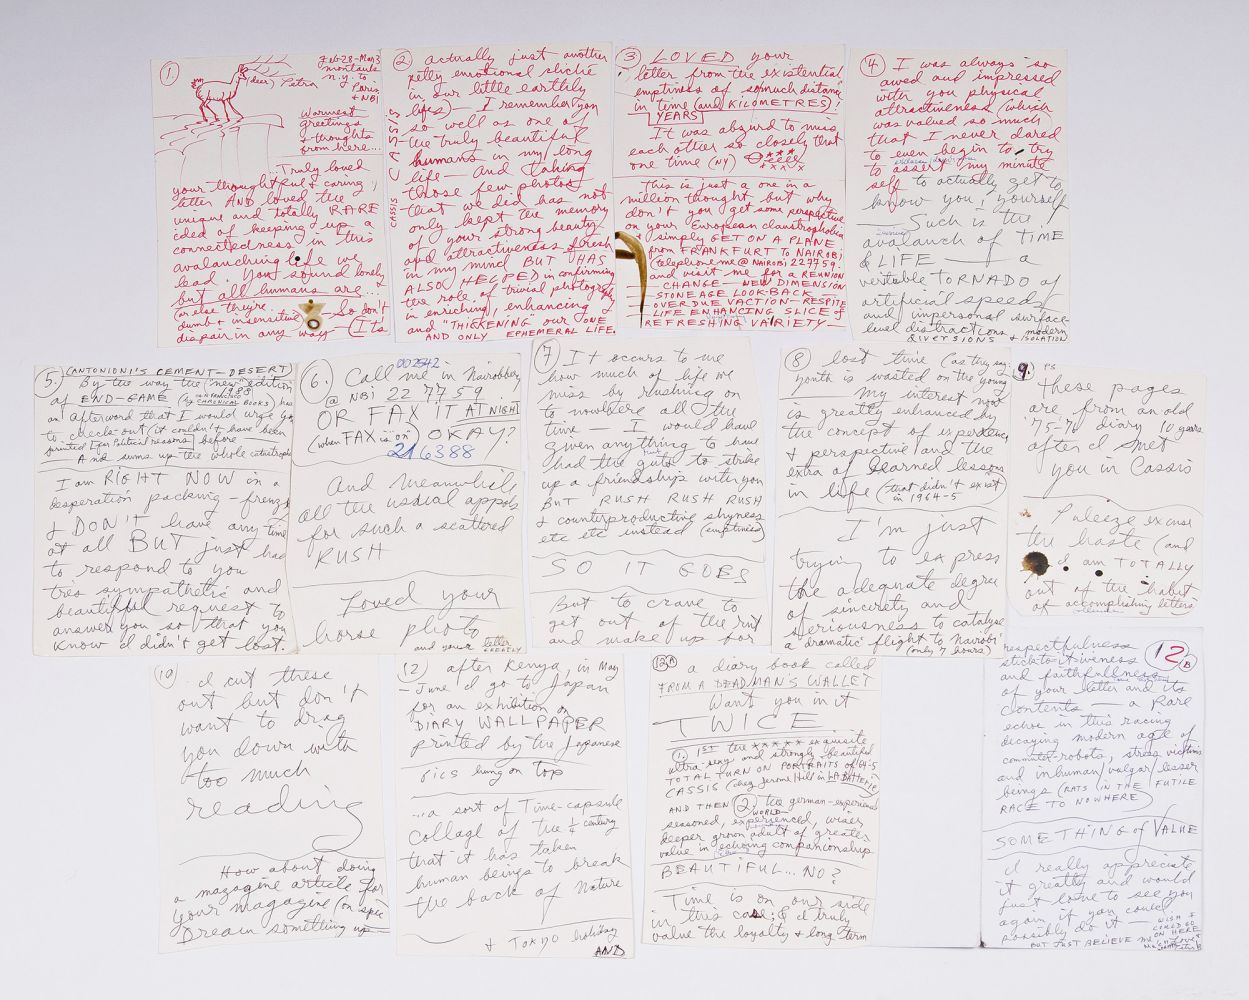 1.
Feb-28-Mar 3
montauk
n.y. to
Paris
+ NBI
(deer) Petra
Warmest
greetings
+ thoughts
from here...
...Truly loved
your thoughtful + caring,
letter AND loved the
unique and totally RARE
idea of keeping up a
connectedness in this
avalanching life we
lead. You sound lonely
but all humans are...
(or else they're
dumb + insensitive) So don't
dispair in any way (Its
2.
CASSIS
CASSIS
actually just another
petty emotional cliche
in our little earthly
lifes) — I remember you
so well as one of
the truly beautiful
humans in my long
life — and taking
those few photos
that we did has not
only kept the memory
of your strong beauty
and attractiveness fresh
in my mind BUT HAS
ALSO HELPED in confirming
the role of trivial photography
in enriching, enhancing
and "THICKENING our ONE
AND ONLY EPHEMERAL LIFE.
3
LOVED your
letter from the existential
emptiness of so much distance
in time (and KILOMETRES)!
YEARS
It was absurd to miss
each other so closely that
one time (NY)
This is just a one in a
million thought but why
don't you get some perspective
on your European claustrophobia
+ simply GET ON A PLANE
from FRANKFURT TO NAIROBI
(telephone me @ NAIROBI 227759)
and visit me for a REUNION
— CHANGE — NEW DIMENSION
— STONEAGE LOOK-BACK —
— OVERDUE VACTION — RESPITE
— LIFE ENHANCING SLICE of
REFRESHING VARIETY —
4
I was always so
awed and impressed
with you physical
attractiveness (which
was valued so much
that I never dared
to even begin to try
to assert my minute
self to actually get to
know you, yourself
— Such is the
avalanch of TIME
& LIFE — a
veritable TORNADO of
artificial speeds
and impersonal surface-
level distractions, modern
DIVERSIONS + ISOLATION
5.
(ANTONIONI'S CEMENT-DESERT
By the way the (new edition
1988
of END-GAME (by CHRONICAL BOOKS) has
SAN FRANCISCO
an afterword that I would urge you
to check out (it couldn't have been
printed (for Political reasons) before —
And sums up the whole catastrophe
I am RIGHT NOW in a
desperation packing-frenzy
& DON'T have any time
at all BUT just had
to respond to you
très sympathetic and
beautiful request to
answer you so that you
know I didn't get lost.
6.
002542
Call me in Nairobbery
@ NBI 22 77 59
OR FAX IT AT NIGHT
(when FAX is on) OKAY?
216388
And meanwhile,
all the usual appols
for such a scattered
RUSH
Loved your
horse photo
and your letter
GREATLY
7
It occurs to me
how much of life we
miss by rushing on
to nowhere all the
time — I would have
given anything to have
had the guts to strike
up a friendship with you
BUT RUSH RUSH RUSH
& counterproductive shyness
etc etc instead (emptiness)
SO IT GOES
But to crave to
get out of the rut
and make up for
8
lost time (as they say
youth is wasted on the young
My interest now
is greatly enhanced by
the concept of experience
+ perspective and the
extra of learned lessons
in life (that didn't exist
in 1964-5)
I'm just
trying to express
the adequate degree
of sincerety and
seriousness to catalyse
a dramatic flight to Nairobi
(only 7 hours)
9.
PS
These pages
are from an old
'75-76 diary 10 years
after I met
you in Cassis
Pleeze excuse
the haste (and
I am TOTALLY
out of the habit
of accomplishing letters
10
I cut these
out but don't
want to drag
you down with
too much
reading
How about doing
a magazine article for
your magazine (on spec
Dream something up
12
after Kenya, in May
— June I go to Japan
for an exhibition on
DIARY WALLPAPER
printed by the Japanese
Pics hung on top
...a sort of Time-capsule
collage of the 1/4 century
that it has taken
human beings to break
the back of Nature
& TOKYO holiday
AND
12A
a diary book called
FROM A DEADMAN'S WALLET
Want you in it
TWICE
1. 1st the ***** exquisite
ultra-sexy and strongly beautiful
TOTAL TURN ON PORTRAITS of 64-5
CASSIS (chez Jerome Hill in LA BATTERIE)
AND THEN 2. the german-experienced
WORLD
seasoned, experienced, wiser,
deeper grown adult of greater
value in echoing companionship
BEAUTIFUL... NO?
Time is on our side
in this case; & I truly
value the loyalty & long term
12B
respectfulness
stick-to-it-iveness
and faithfullness
of your letter and its
contents — a Rare
echoe in this racing
decaying modern age of
commuter-robots, stress victims
and inhuman/vulgar/lesser
beings (RATS IN THE FUTILE
RACE TO NOWHERE)
SOMETHING of VALUE
I really appreciate
it greatly and would
just love to see you
again if you could
possibly do it —
WISH I
COULD GO
ON HERE
BUT JUST BELIEVE me